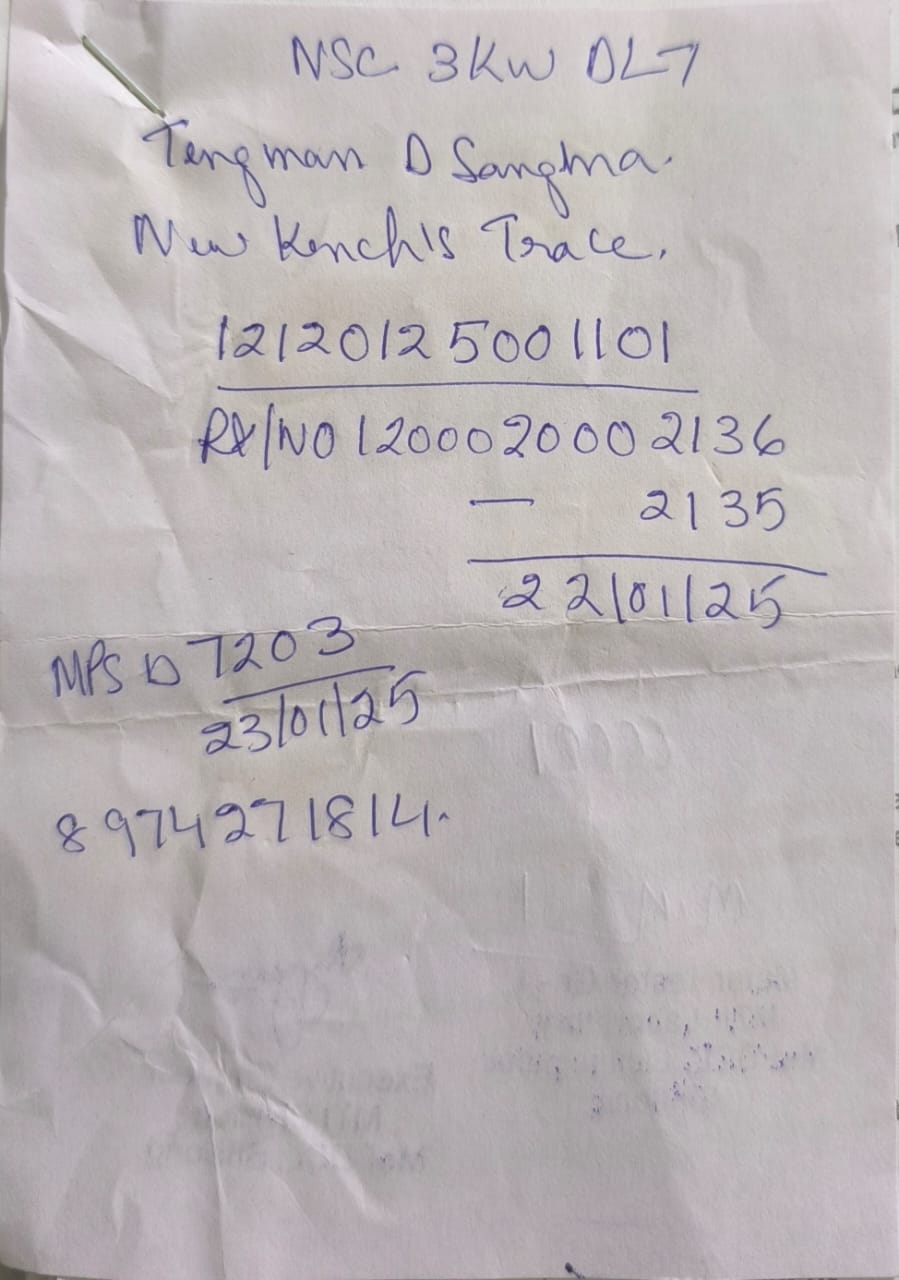 NSC 3KW DLT
Tengman D Sangma.
New Kench's Trace.
12120125001101
RX/NO 120002000 2136
— 2135
22/01/25
MPS D 7203
23/01/25
8974271814.